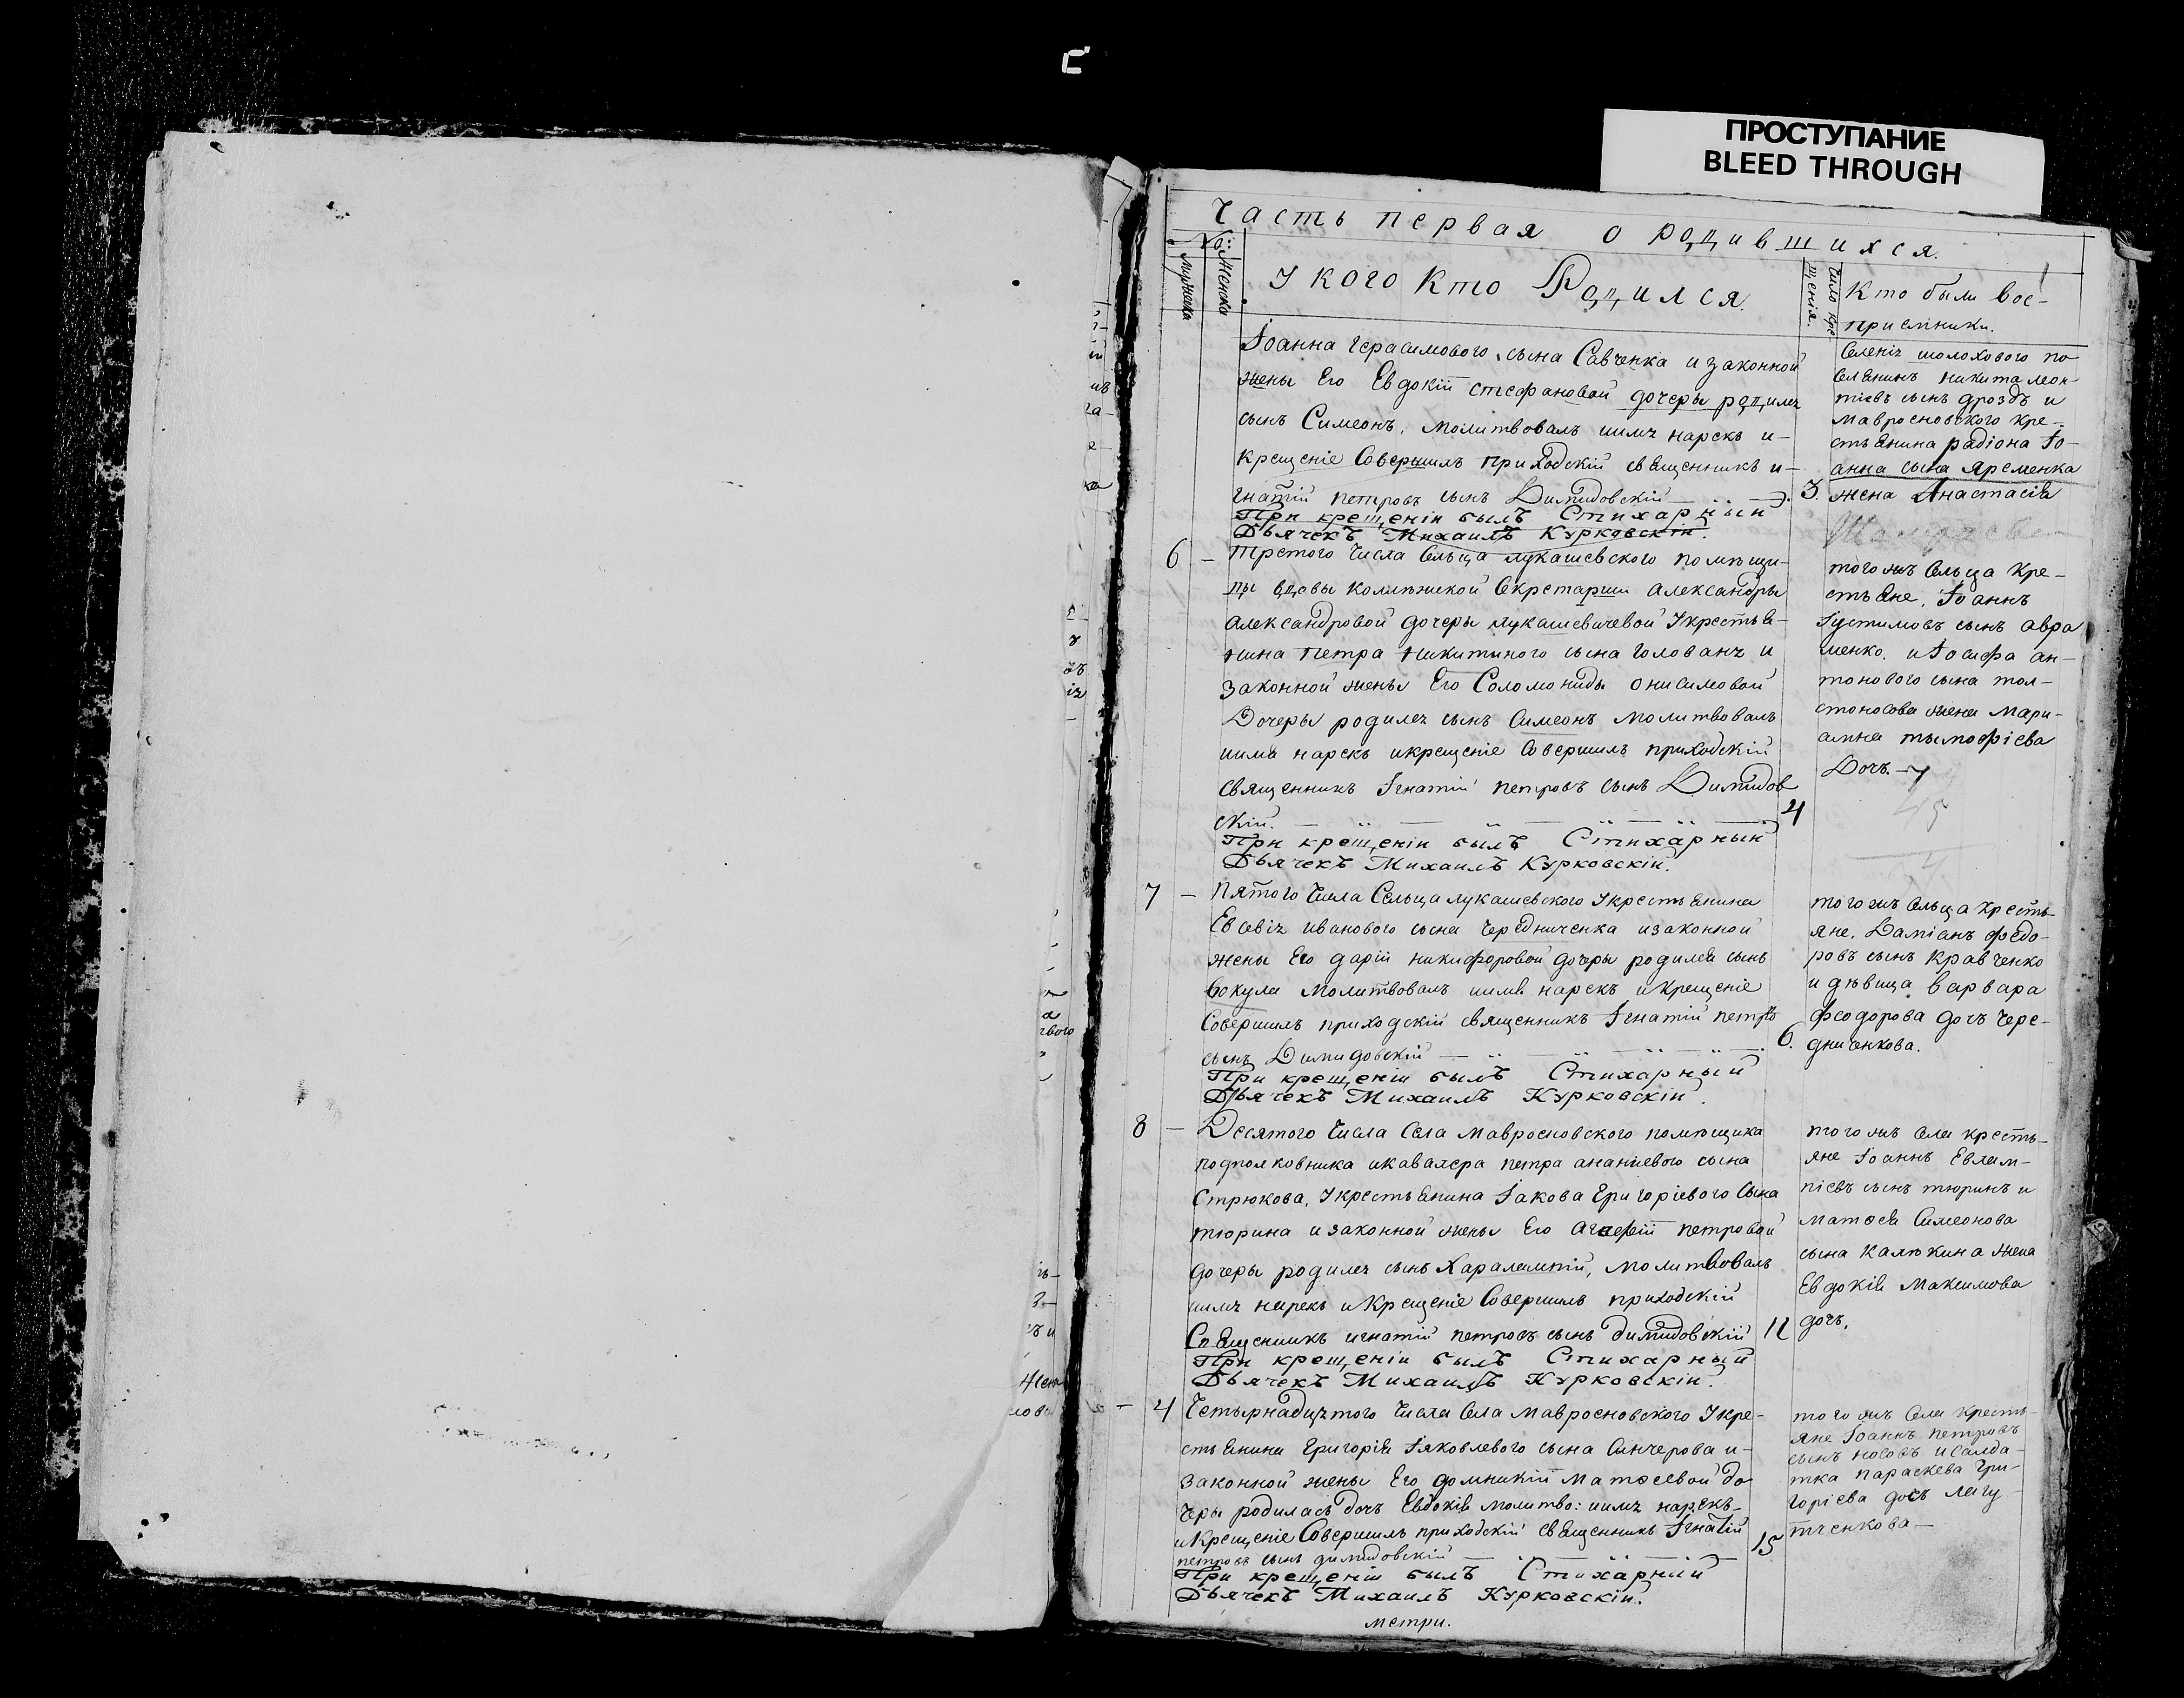 ПРОСТУПАНИЕ
BLEED THROUGH
Часть первая о родившихся.
No:
мужеска
Женска
У кого кто Родился.
Число кре
щенія.
Кто были вос-
приемники.
Іоанна Герасимового сына Савченка и законной
жены Его Евдокіи стефановой дочеры родился
сынъ Симеонъ, молитвовалъ имя нарекъ и-
крещеніе Совершилъ приходскій священникъ и-
гнатій петровъ сынъ Димидовскій
При крещеніи былъ Стихарный
Дьячекъ Михаилъ Курковскій.
3.
селенія шолохового по
селянинъ никита леон-
тіевъ сынъ дроздъ и
мавроновского кре-
стьянина радіона Іо-
анна сына яременка
жена Анастасія
6 -
третого Числа Сельца лукашевского помѣщи-
цы вдовы коллежской Секретарши Александры
Александровой дочеры лукашевичевой Укрестья-
нина петра никитиного сына голованя и
законной жены Его Соломониды онисимовой
Дочеры родился сынъ Симеонъ молитвовалъ
имя нарекъ икрещеніе Совершилъ приходскій
священникъ Игнатій петровъ сынъ Димидов
скій.
При крещеніи былъ Стихарный
Дьячекъ Михаилъ Курковскій.
4
того жъ Сельца Кре-
стьяне, Іоаннъ
Іустимовъ сынъ авра
менко. и Іосифа ан-
тонового сына тол-
стоносова жена Мари-
амна тымофіева
Дочъ.
45
7 -
Пятого Числа Сельца лукашевского Укрестьянина
Евсевія иванового сына Чередниченка изаконной
жены Его даріи никифоровой дочеры родился сынъ
вокула молитвовалъ имя нарекъ икрещеніе
Совершилъ приходскій священникъ Игнатій петровъ
сынъ Димидовскій
При крещеніи былъ Стихарный
Дьячекъ Михаилъ Курковскій.
6.
того жъ Сельца кресть-
яне, Даміанъ федо-
ровъ сынъ кравченко
и дѣвица варвара
феодорова дочъ чере-
дниченкова.
8 -
Десятого Числа Села Мавроновского помѣщика
подполковника икавалера петра ананіевого сына
Стрюкова, Укрестьянина Іакова Григоріевого Сына
тюрина и законной жены Его Агафіи петровой
дочеры родился сынъ Харалампій, молитвовалъ
имя нарекъ и Крещеніе Совершилъ приходскій
Священникъ игнатій петровъ сынъ димидовскій
При крещеніи былъ Стихарный
Дьячекъ Михаилъ Курковскій.
12
того жъ Села кресть-
яне Іоаннъ Евлам-
піевъ сынъ тюринъ и
матвея Симеонова
сына калѣкина жена
Евдокія Максимова
дочъ.
- 4
Четырнадцятого Числа Села мавроновского Укре-
стьянина Григорія Іяковлевого сына Синчерова и-
законной жены Его домникіи матвеевой до
черы родилась дочъ Евдокія молитво: имя нарекъ
икрещеніе Совершилъ приходскій священникъ Игнатій
петровъ сынъ димидовскій
При крещеніи былъ Стихарний
Дьячекъ Михаилъ Курковскій.
15
того жъ Села кресть-
яне Іоаннъ петровъ
сынъ носовъ и салда-
тка параскева Гри-
горіева дочъ лагу-
тченкова-
метри.